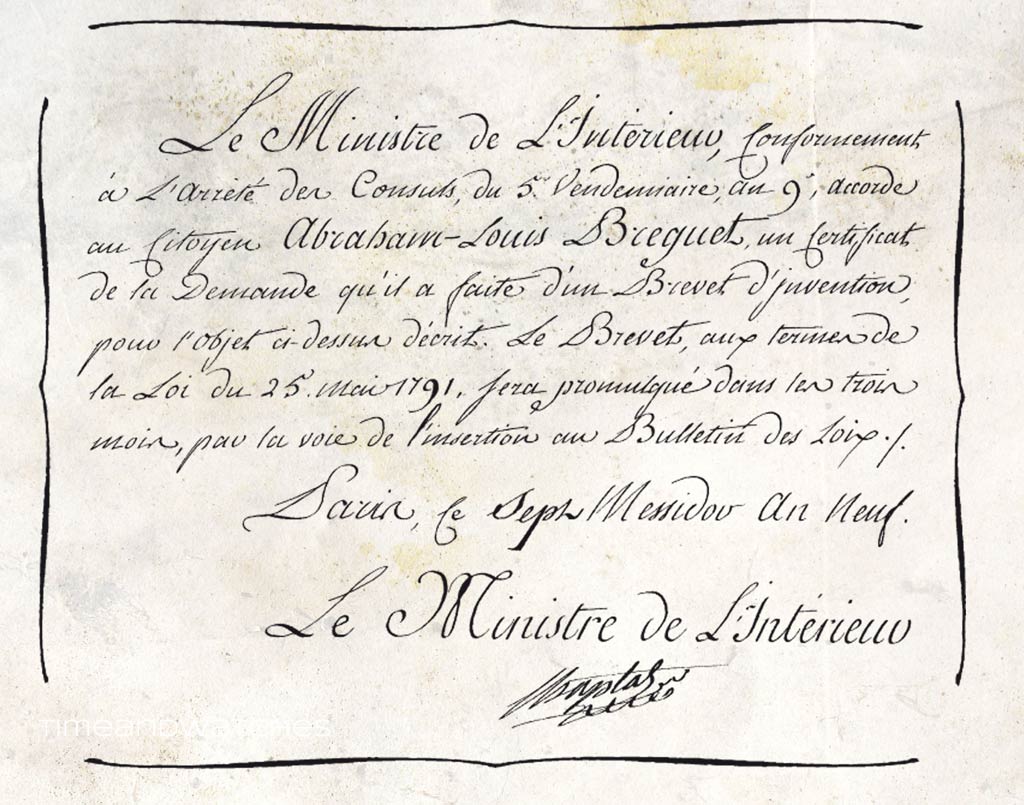 Le Ministre de L'Intérieur, Conformement
à L'Arrêté des Consuls, du 5e. Vendemiaire, an 9e, accorde
au Citoyen Abraham-Louis Breguet, un Certificat
de la Demande qu'il a faite d'un Brevet d'invention,
pour l'objet ci-dessus décrit. Le Brevet, aux termes de
la Loi du 25. mai 1791. sera promulgué dans les trois
mois, par la voie de l'insertion au Bulletin des Loix./.
Paris, Ce Sept Messidor An Neuf.
Le Ministre de L'Intérieur
Chaptal
timeandwatches